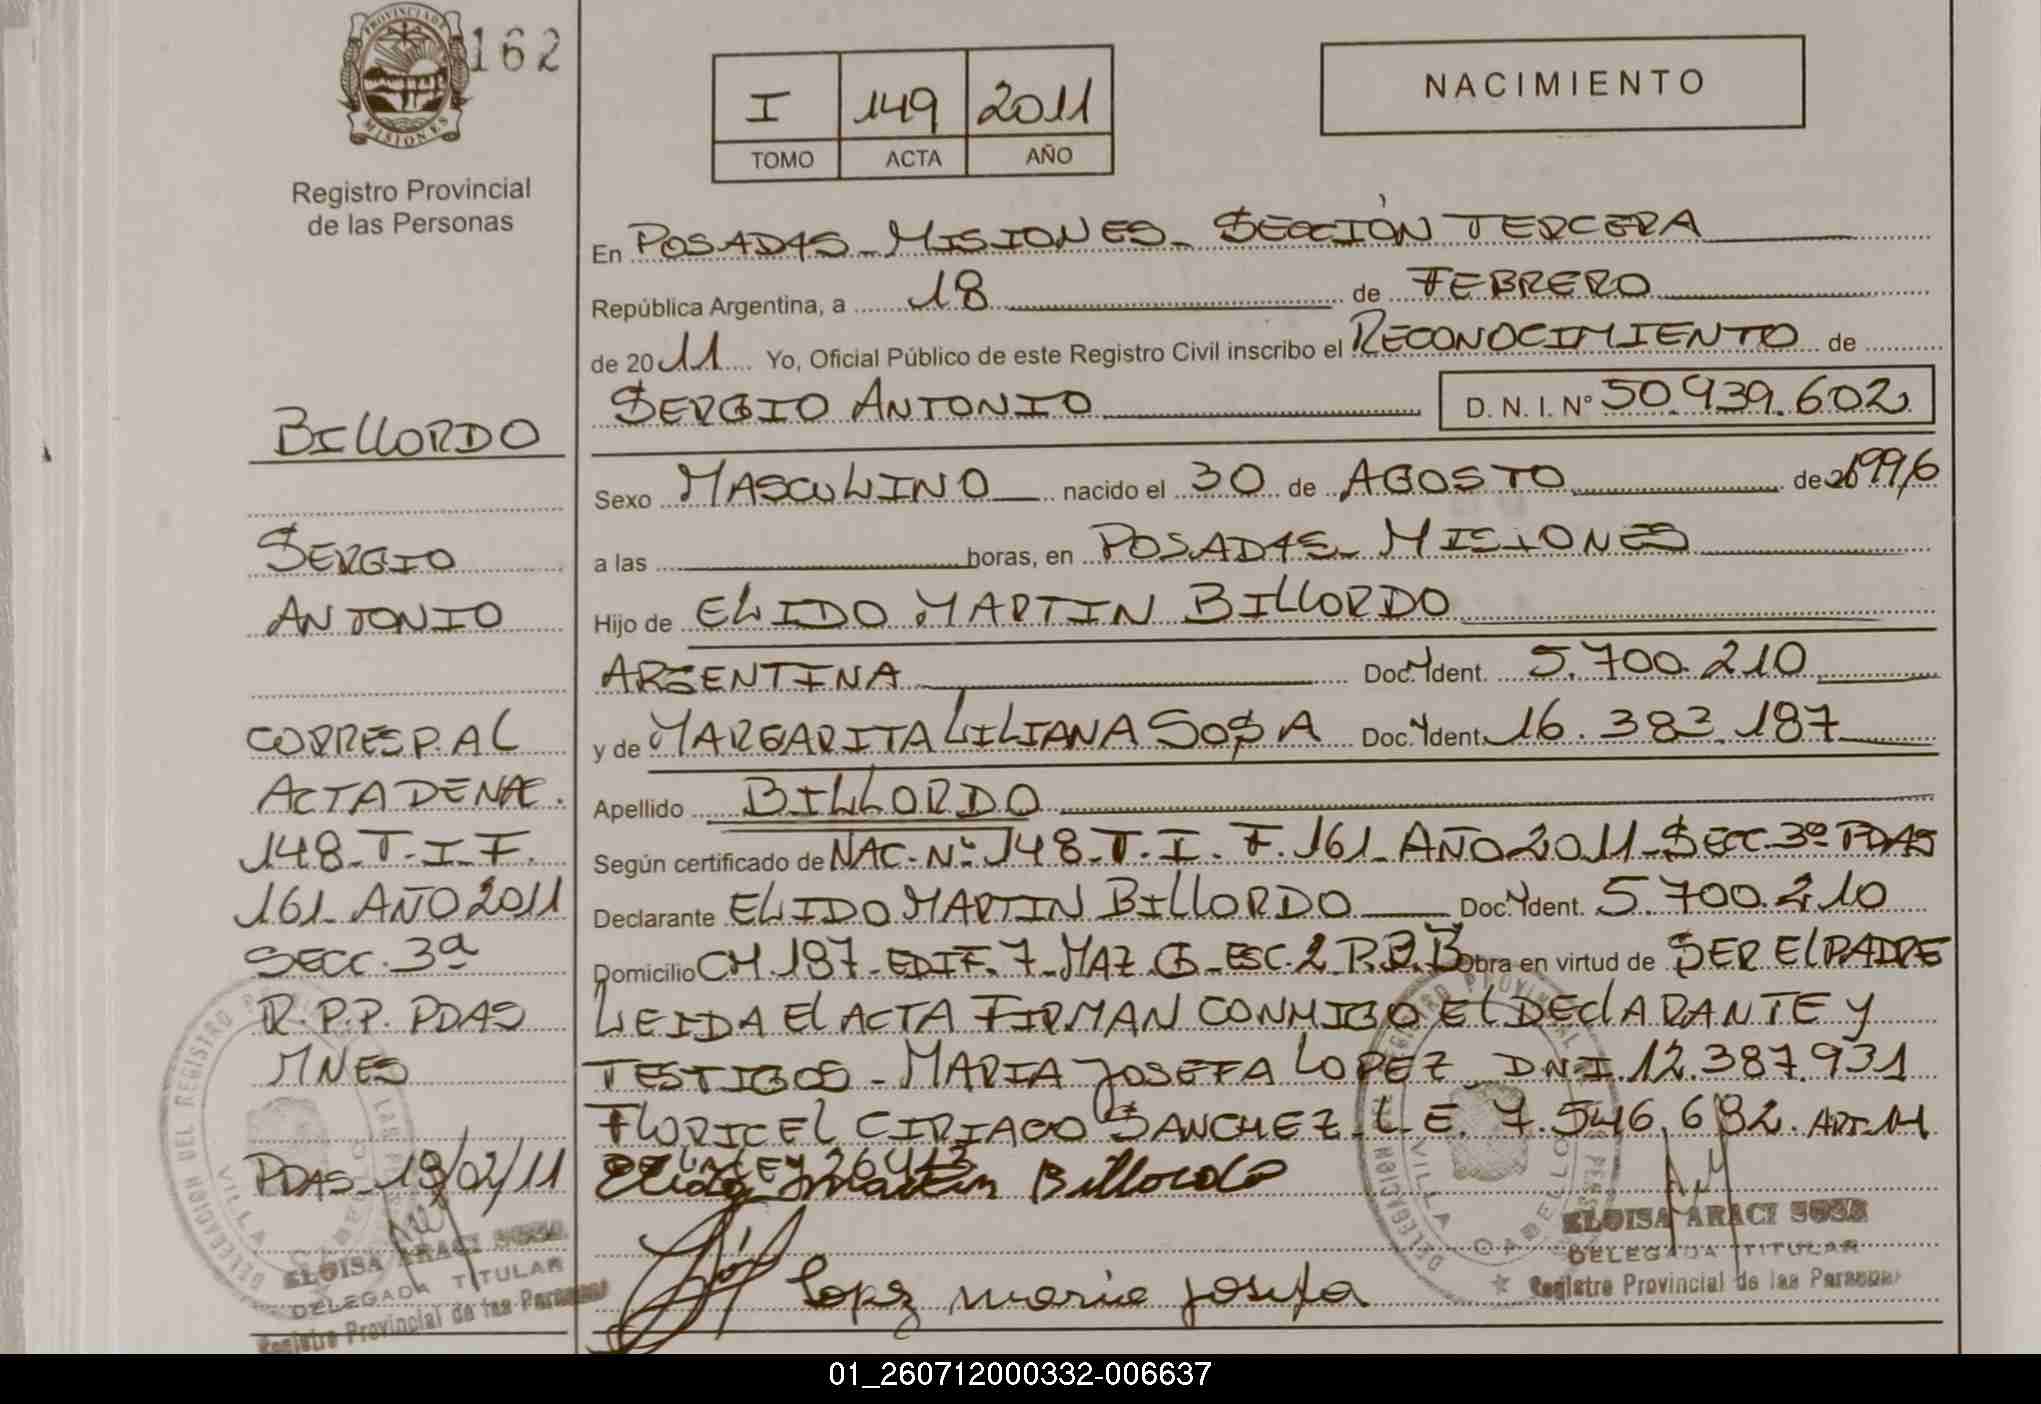 162
PROVINCIA DE
MISIONES
Registro Provincial
de las Personas
I 149 2011
TOMO ACTA AÑO
NACIMIENTO
En POSADAS - MISIONES - SECCIÓN TERCERA
República Argentina, a 18 de FEBRERO
de 2011 Yo, Oficial Público de este Registro Civil inscribo el RECONOCIMIENTO de
SERGIO ANTONIO D. N. I. N° 50.939.602
Sexo MASCULINO nacido el 30 de AGOSTO de 1996
a las horas, en POSADAS - MISIONES
Hijo de ELIDO MARTIN BILLORDO
ARGENTINA Doc. Ident. 5.700.210
y de MARGARITA LILIANA SOSA Doc. Ident. 16.383.187
Apellido BILLORDO
Según certificado de NAC. N° 148 - T. I. F. 161 - AÑO 2011 - SECC. 3ª PDAS
Declarante ELIDO MARTIN BILLORDO Doc. Ident. 5.700.210
Domicilio CH. 187 - EDIF. 7 - MAZ. - ESC. 2 P.B. Obra en virtud de SER EL PADRE
LEIDA El ACTA FIRMAN CONMIGO El DEClARANTE Y
TESTIGOS - MARIA JOSEFA LOPEZ D.N.I. 12.387.931
FLORICEL CIRIACO SANCHEZ L.E. 7.546.682. ART. 11
DE LA LEY 26413
Elido Martin Billordo
Lopez maria josefa
ELOISA ARACI SOSA
DELEGADA TITULAR
Registro Provincial de las Personas
BILLORDO
SERGIO
ANTONIO
CORRESP. AL
ACTA DE NAC.
148 - T - I - F.
161 - AÑO 2011
SECC. 3ª
R.P.P. PDAS
MNES
PDAS - 18/02/11
ELOISA ARACI SOSA
DELEGADA TITULAR
Registro Provincial de las Personas
DELEGACION DEL REGISTRO
VILLA CABELLO
01_260712000332-006637